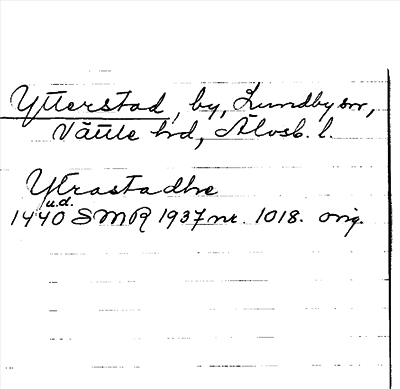 Ytterstad, by, Lundby sn,
Vättle hd, Älvsb. l.
Ytrastadhe
u.d.
1440 SMR 1937 nr. 1018. orig.